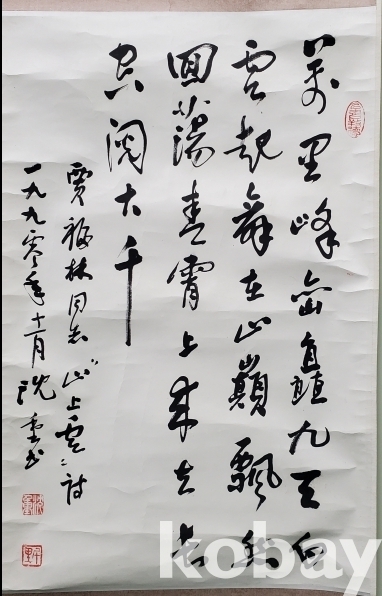 萬里峰峦矗九天白
雲起舞在山巔飘然
回荡青霄上来去长
空阅大千
贾福林同志《山上雲》诗
一九九零年十一月沈重书
kobay